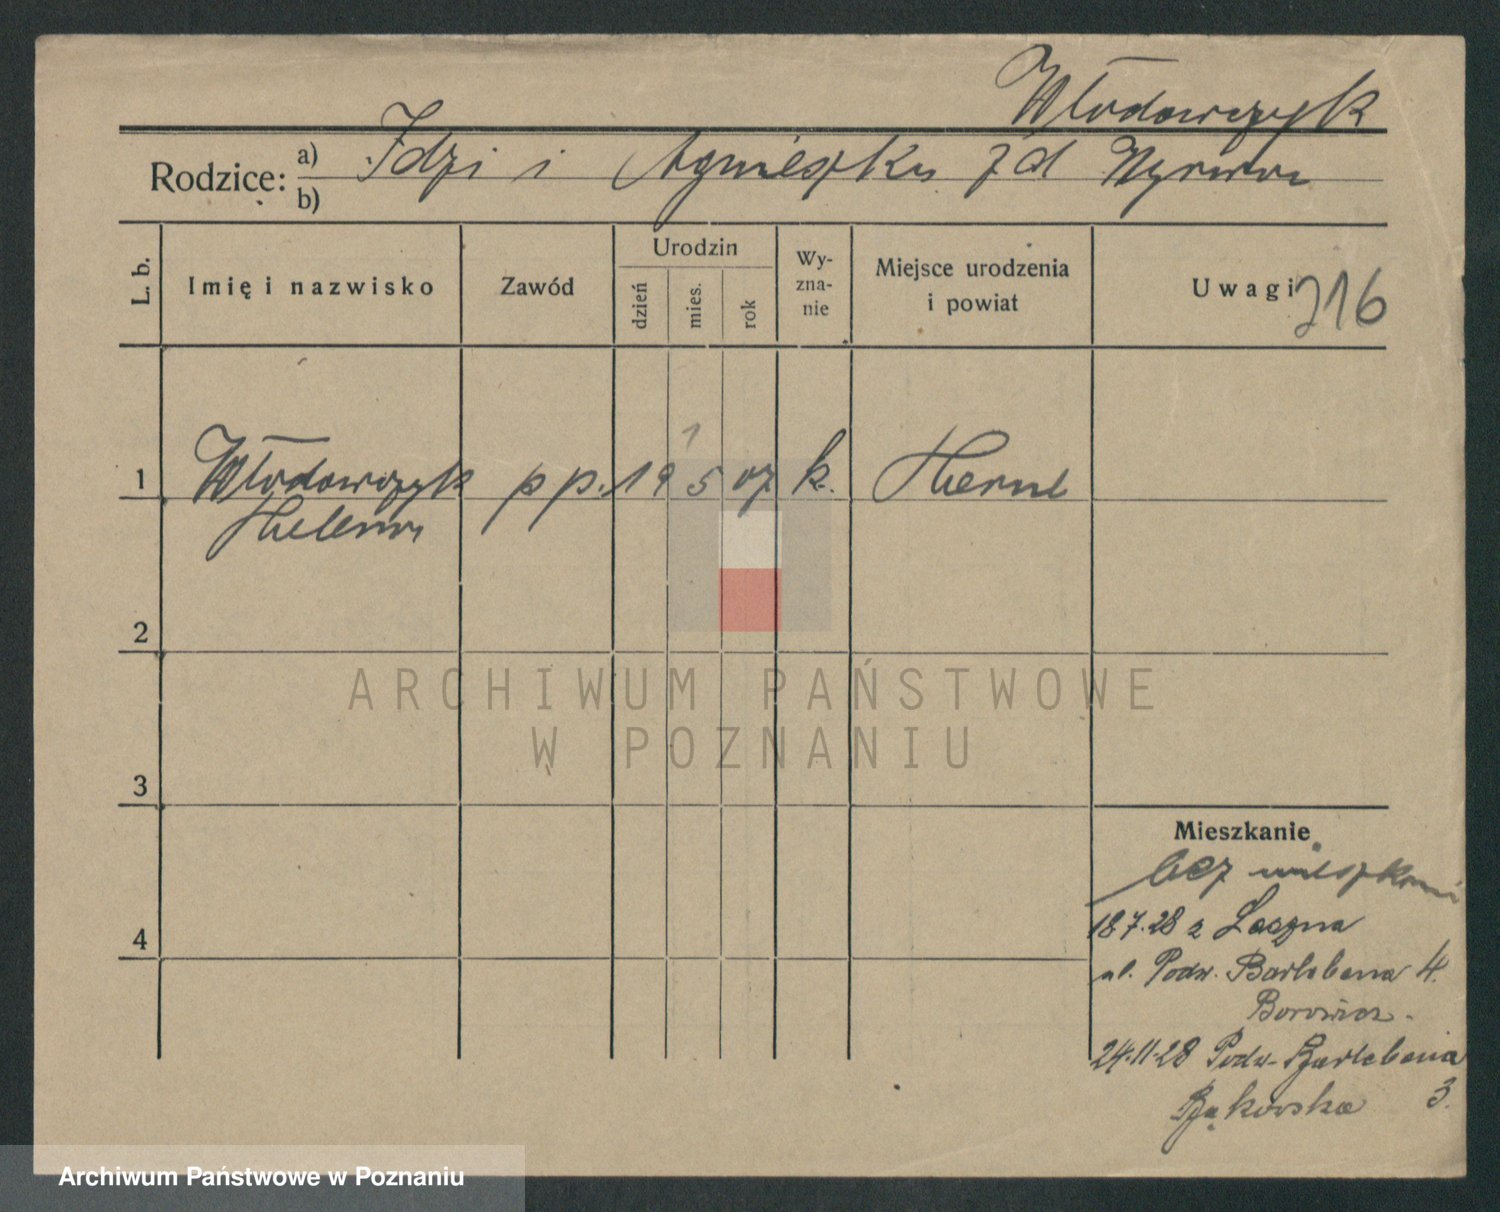 Włodawczyk
Rodzice: a) Idzi i Agnieszka z d
b)
L. b.
Imię i nazwisko
Zawód
Urodzin
dzień
mies.
rok
Wy-
zna-
nie
Miejsce urodzenia
i powiat
Uwagi 216
1
1 Włodawczyk pp. 19 5 07 k. Herne
Helena
2
3
4
Mieszkanie
bez mieszkani
18.7.28 z Leszna
ul. Podw. Bartlebena 4.
Borowicz.
24.11.28 Podw. Bartlebena
Bąkowska 3.
ARCHIWUM PAŃSTWOWE
W POZNANIU
Archiwum Państwowe w Poznaniu